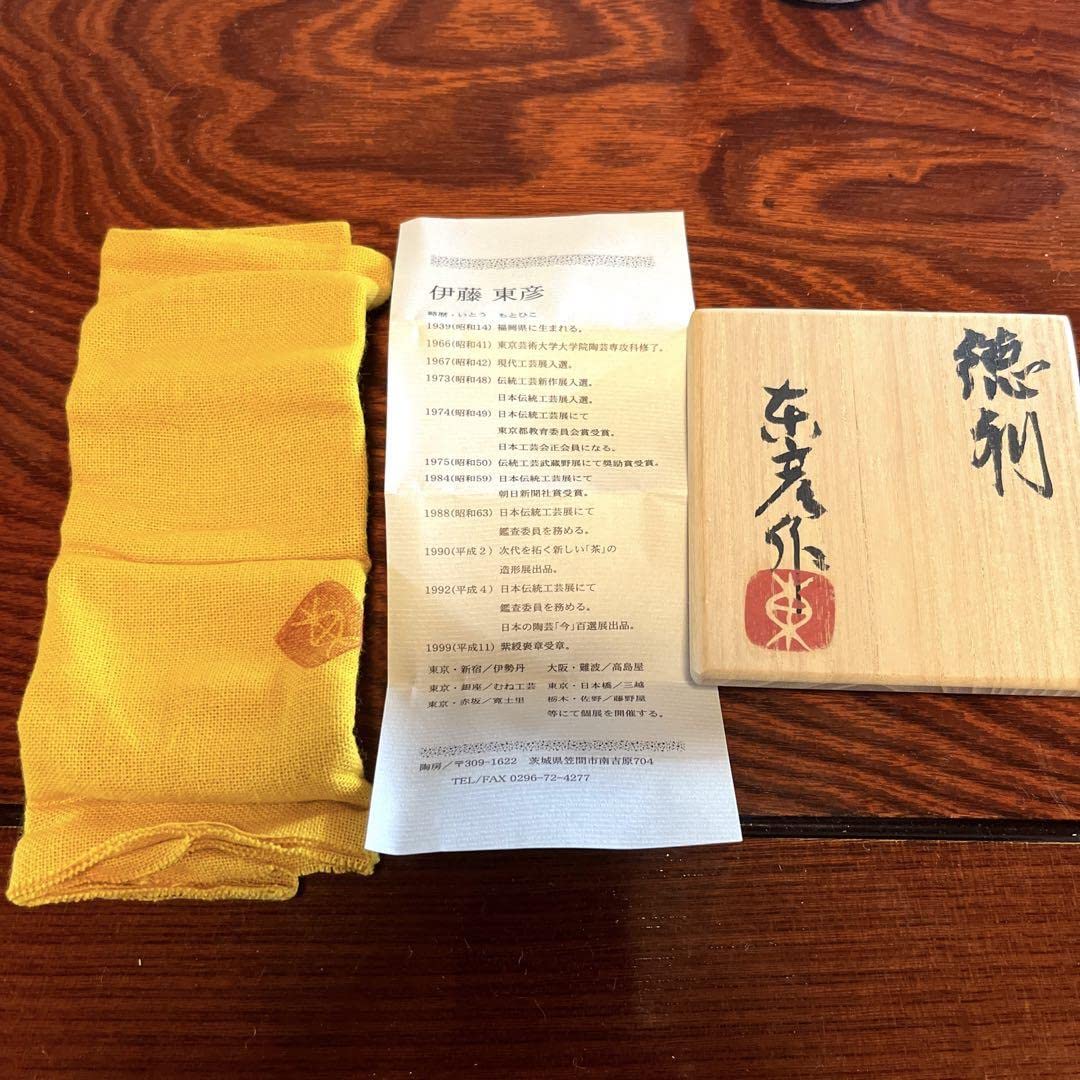 伊藤 東彦
略歴・いとう もとひこ
1939(昭和14) 福岡県に生まれる。
1966(昭和41) 東京芸術大学大学院陶芸専攻科修了。
1967(昭和42) 現代工芸展入選。
1973(昭和48) 伝統工芸新作展入選。
日本伝統工芸展入選。
1974(昭和49) 日本伝統工芸展にて
東京都教育委員会賞受賞。
日本工芸会正会員になる。
1975(昭和50) 伝統工芸武蔵野展にて奨励賞受賞。
1984(昭和59) 日本伝統工芸展にて
朝日新聞社賞受賞。
1988(昭和63) 日本伝統工芸展にて
鑑査委員を務める。
1990(平成2) 次代を拓く新しい「茶」の
造形展出品。
1992(平成4) 日本伝統工芸展にて
鑑査委員を務める。
日本の陶芸「今」百選展出品。
1999(平成11) 紫綬褒章受章。
東京・新宿/伊勢丹 大阪・難波/高島屋
東京・銀座/むね工芸 東京・日本橋/三越
東京・赤坂/寛土里 栃木・佐野/藤野屋
等にて個展を開催する。
陶房/〒309-1622 茨城県笠間市南吉原704
TEL/FAX 0296-72-4277
徳利
東彦作
東